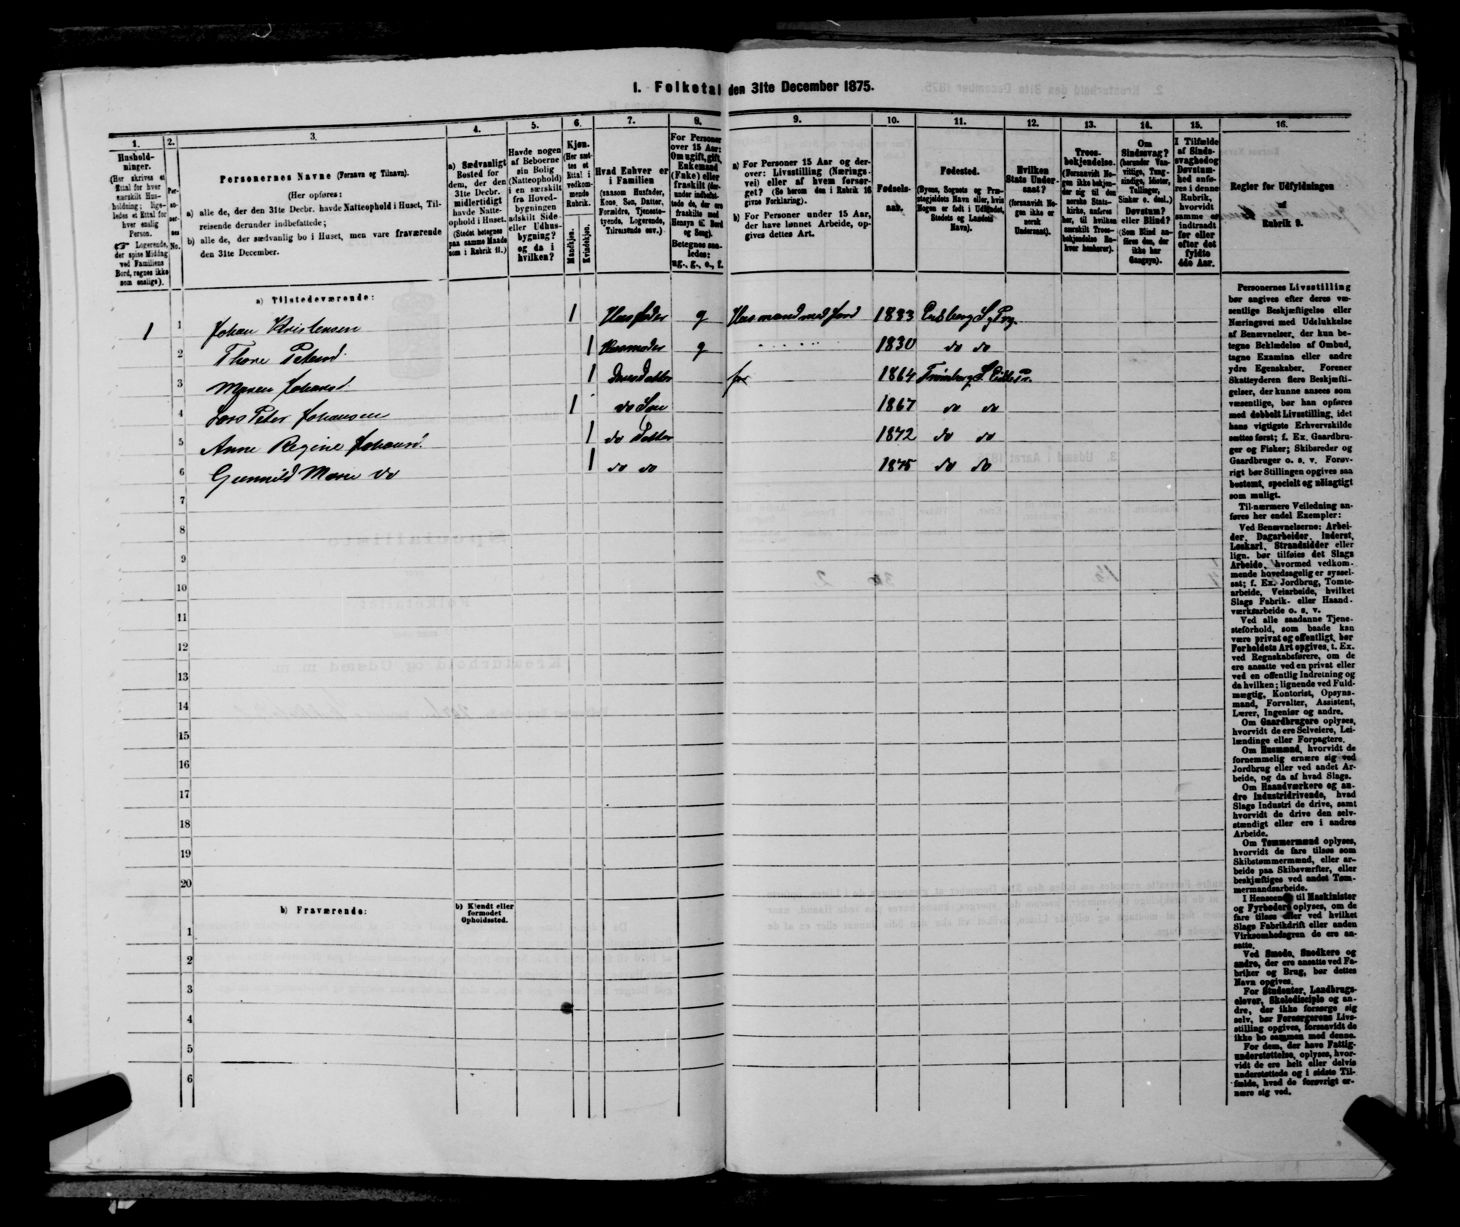 I. Folketal den 31te December 1875.
1.
2.
3.
4.
5.
6.
7.
8.
9.
10.
11.
12.
13.
14.
15.
16.
Hushold-
ninger.
(Her skrives et
Ettal for hver
særskilt Hus-
holdning; lige-
ledes et Ettal for
hver enslig
Person.
☞ Logerende,
der spise Middag
ved Familiens
Bord, regnes ikke
som enslige).
Per-
so-
ner-
nes
No.
Personernes Navne (Fornavn og Tilnavn).
(Her opføres:
a) alle de, der den 31te Decbr. havde Natteophold i Huset, Til-
reisende derunder indbefattede;
b) alle de, der sædvanlig bo i Huset, men vare fraværende
den 31te December.
a) Sædvanligt
Bosted for
dem, der den
31te Decbr.
midlertidigt
havde Natte-
ophold i Huset.
(Stedet betegnes
paa samme Maade
som i Rubrik 11.)
Havde nogen
af Beboerne
sin Bolig
(Natteophold)
i en særskilt
fra Hoved-
bygningen
adskilt Side-
eller Udhus-
bygning?
og da i
hvilken?
Kjøn.
(Her sæt-
tes et
Ettal i
vedkom-
mende
Rubrik.
Mandkjøn.
Kvindekjøn.
Hvad Enhver er
i Familien
(saasom Husfader,
Kone, Søn, Datter,
Forældre, Tjeneste-
tyende, Logerende,
Tilreisende osv.)
For Personer
over 15 Aar:
Om ugift, gift,
Enkemand
(Enke) eller
fraskilt (der-
under indbefat-
tede de, der ere
fraskilte med
Hensyn til Bord
og Seng).
Betegnes saa-
ledes:
ug., g., e., f.
a) For Personer 15 Aar og der-
over: Livsstilling (Nærings-
vei) eller af hvem forsør-
get? (Se herom den i Rubrik 16
givne Forklaring).
b) For Personer under 15 Aar,
der have lønnet Arbeide, op-
gives dettes Art.
Fødsels-
aar.
Fødested.
(Byens, Sognets og Præ-
stegjeldets Navn eller, hvis
Nogen er født i Udlandet,
Stedets og Landets
Navn).
Hvilken
Stats Under-
saat?
(forsaavidt No-
gen ikke er
norsk
Undersaat).
Troes-
bekjendelse.
(Forsaavidt No-
gen ikke bekjen-
der sig til den
norske Stats-
kirke, anføres
her, til hvilken
særskilt Troes-
bekjendelse En-
hver henhører).
Om
Sindssvag?
(herunder Van-
vittige, Tung-
sindige, Idioter,
Tullinger,
Sinker o. desl.)
Døvstum?
eller Blind?
(Som Blind an-
føres den, der
ikke har
Gangsyn).
I Tilfælde
af Sinds-
svaghed og
Døvstum-
hed anfø-
res i denne
Rubrik,
hvorvidt
samme er
indtraadt
før eller
efter det
fyldte
4de Aar.
Regler for Udfyldningen
af
Rubrik 9.
a) Tilstedeværende:
1 1 Johan Kristensen 1 Husfader g Husmand med Jord 1833
2 Thore 1 Husmoder g 1830 do do
3 Maren 1 Datter 1864
4 Lars Peter Johansen 1 do Søn 1867 do do
5 Anne Regine Johansd. 1 do Datter 1872 do do
6 Gunnild Marie do 1 do do 1875 do do
7
8
9
10
11
12
13
14
15
16
17
18
19
20
b) Fraværende:
b) Kjendt eller
formodet
Opholdssted.
1
2
3
4
5
6
Personernes Livsstilling
bør angives efter deres væ-
sentlige Beskjæftigelse eller
Næringsvei med Udelukkelse
af Benævnelser, der kun be-
tegne Beklædelse af Ombud,
tagne Examina eller andre
ydre Egenskaber. Forener
Skatteyderen flere Beskjæfti-
gelser, der kunne ansees som
væsentlige, bør han opføres
med dobbelt Livsstilling, idet
hans vigtigste Erhvervskilde
sættes først; f. Ex. Gaardbru-
ger og Fisker; Skibsreder og
Gaardbruger o. s. v. Forøv-
rigt bør Stillingen opgives saa
bestemt, specielt og nöiagtigt
som muligt.
Til nærmere Veiledning an-
føres her endel Exempler:
Ved Benævnelserne: Arbei-
der, Dagarbeider, Inderst,
Løskarl, Strandsidder eller
lign. bør tilføies det Slags
Arbeide, hvormed vedkom-
mende hovedsagelig er syssel-
sat; f. Ex. Jordbrug, Tomte-
arbeide, Veiarbeide, hvilket
Slags Fabrik- eller Haand-
værksarbeide o. s. v.
Ved alle saadanne Tjene-
steforhold, som baade kan
være privat og offentligt, bør
Forholdets Art opgives, t. Ex.
ved Regnskabsførere, om de
ere ansatte ved en privat eller
ved en offentlig Indretning og
da hvilken; lignende ved Fuld-
mægtig, Kontorist, Opsyns-
mand, Forvalter, Assistent,
Lærer, Ingeniør og andre.
Om Gaardbrugere oplyses,
hvorvidt de ere Selveiere, Lei-
lændinge eller Forpagtere.
Om Husmænd, hvorvidt de
fornemmelig ernære sig ved
Jordbrug eller ved andet Ar-
beide, og da af hvad Slags.
Om Haandværkere og an-
dre Industridrivende, hvad
Slags Industri de drive, samt
hvorvidt de drive den selv-
stændigt eller ere i andres
Arbeide.
Om Tømmermænd oplyses,
hvorvidt de fare tilsøs som
Skibstømmermænd, eller ar-
beide paa Skibsværfter, eller
beskjæftiges ved andet Tøm-
mermandsarbeide.
I Henseende til Maskinister
og Fyrbødere oplyses, om de
fare tilsøs eller ved hvilket
Slags Fabrikdrift eller anden
Virksomhedsgren de ere an-
satte.
Ved Smede, Snedkere og
andre, der ere ansatte ved Fa-
briker og Brug, bør dettes
Navn opgives.
For Studenter, Landbrugs-
elever, Skoledisciple og an-
dre, der ikke forsørge sig
selv, bør Forsørgerens Livs-
stilling opgives, forsaavidt de
ikke bo sammen med denne.
For dem, der have Fattig-
understøttelse, oplyses, hvor-
vidt de ere helt eller delvis
understøttede og i sidste Til-
fælde, hvad de forøvrigt er-
nære sig ved.